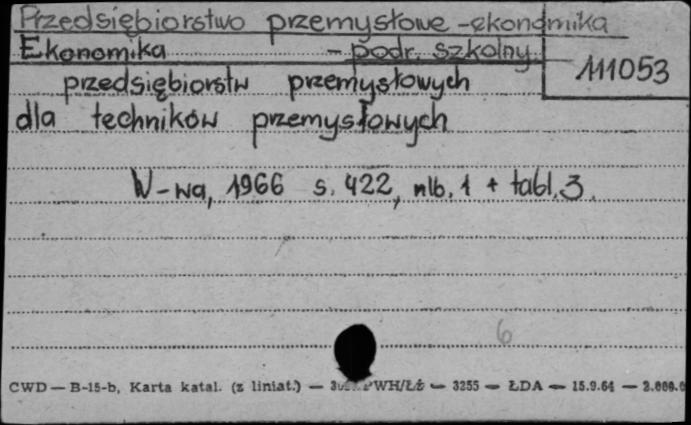 Przedsiębiorstwo przemysłowe - ekonomika
Ekonomika - podr. szkolny
111053
przedsiębiorstw przemysłowych
dla techników przemysłowych
W-wa, 1966 s. 422, nlb. 1 + tabl. 3.
6
CWD — B-15-b, Karta katal. (z liniat.) — PWH/Łź — 3255 — ŁDA — 15.9.64 —